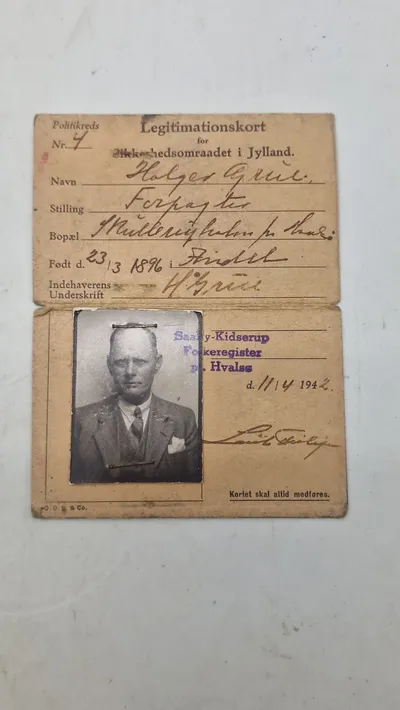 Politikreds
Nr. 4
Legitimationskort
for
Sikkerhedsomraadet i Jylland.
Navn Holger Grue.
Stilling Forpagter
Bopæl pr. Hvalsø
Født d. 23/3 1896 i Sindal
Indehaverens
Underskrift H Grue
Saaby-Kidserup
Folkeregister
pr. Hvalsø
d. 11/4 1942.
Kortet skal altid medføres.